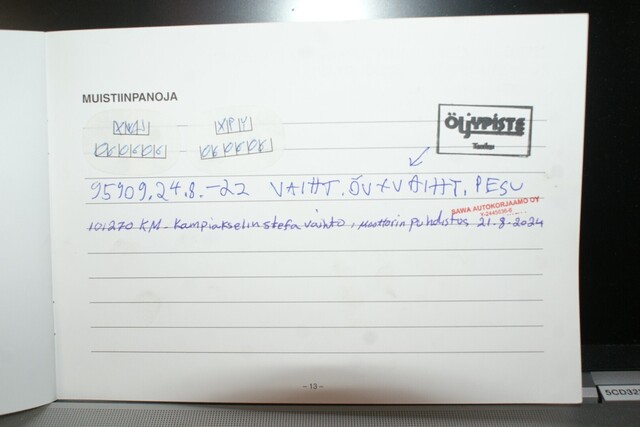 MUISTIINPANOJA
ÖLJYPISTE
95909.24.8.-22 VAIHT. ÖV+VAIHT. PESU
SAWA AUTOKORJAAMO OY
101270 KM - Kampiakselin stefa vaihto, moottorin puhdistus 21.8.2024
- 13 -
5CD32